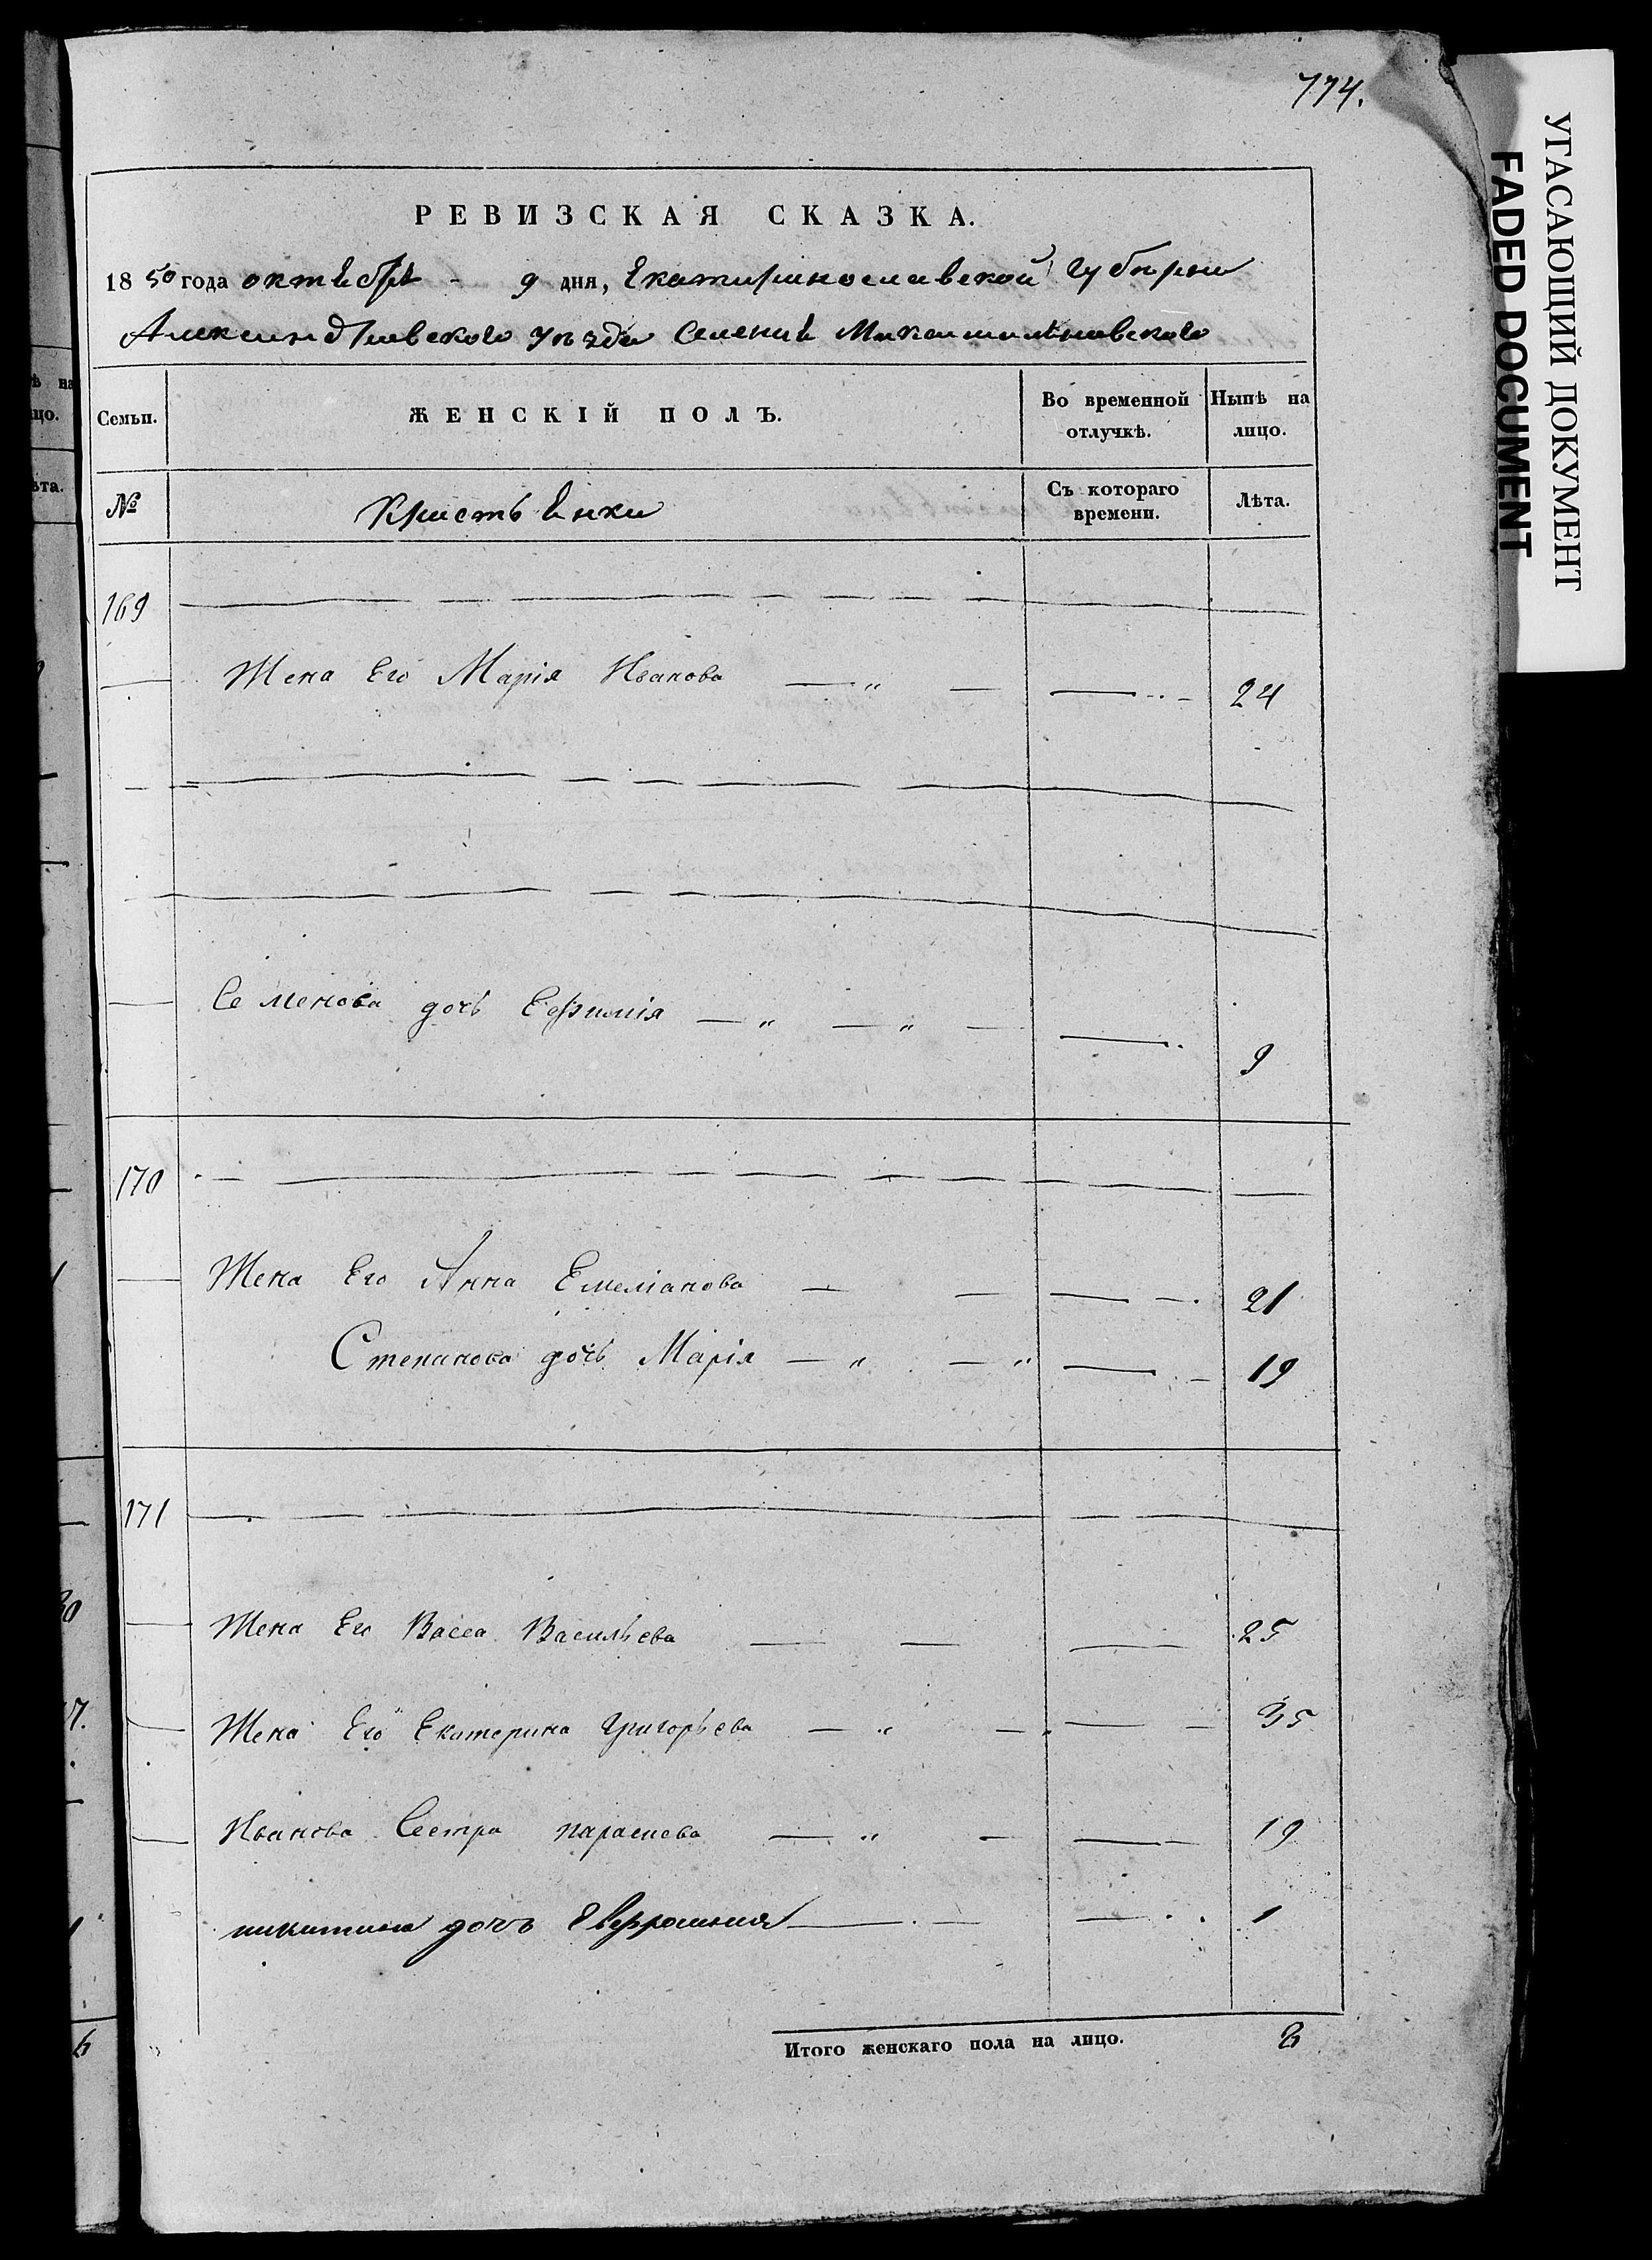 774.
РЕВИЗСКАЯ СКАЗКА.
1850 года октября - 9 дня, Екатеринославской Губернии
Александровского уезда Селения Михайловского
Семьи. ЖЕНСКІЙ ПОЛЪ. Во временной отлучкѣ. Нынѣ на лицо.
№ Крестьянки Съ котораго времени. Лѣта.
169
Жена Его Марія Иванова — " — — 24
Семенова дочь Ефимія — " — " — — 9
170
Жена Его Анна Емеліанова — — — 21
Степанова дочь Марія — " — " — 19
171
Жена Его Васса Васильева — — — 25
Жена Его Екатерина Григорьева — " — — 35
Иванова Сестра параскева — " — — 19
никитина дочь Евфросиния — — — 1
Итого женскаго пола на лицо. 8
УГАСАЮЩИЙ ДОКУМЕНТ
FADED DOCUMENT